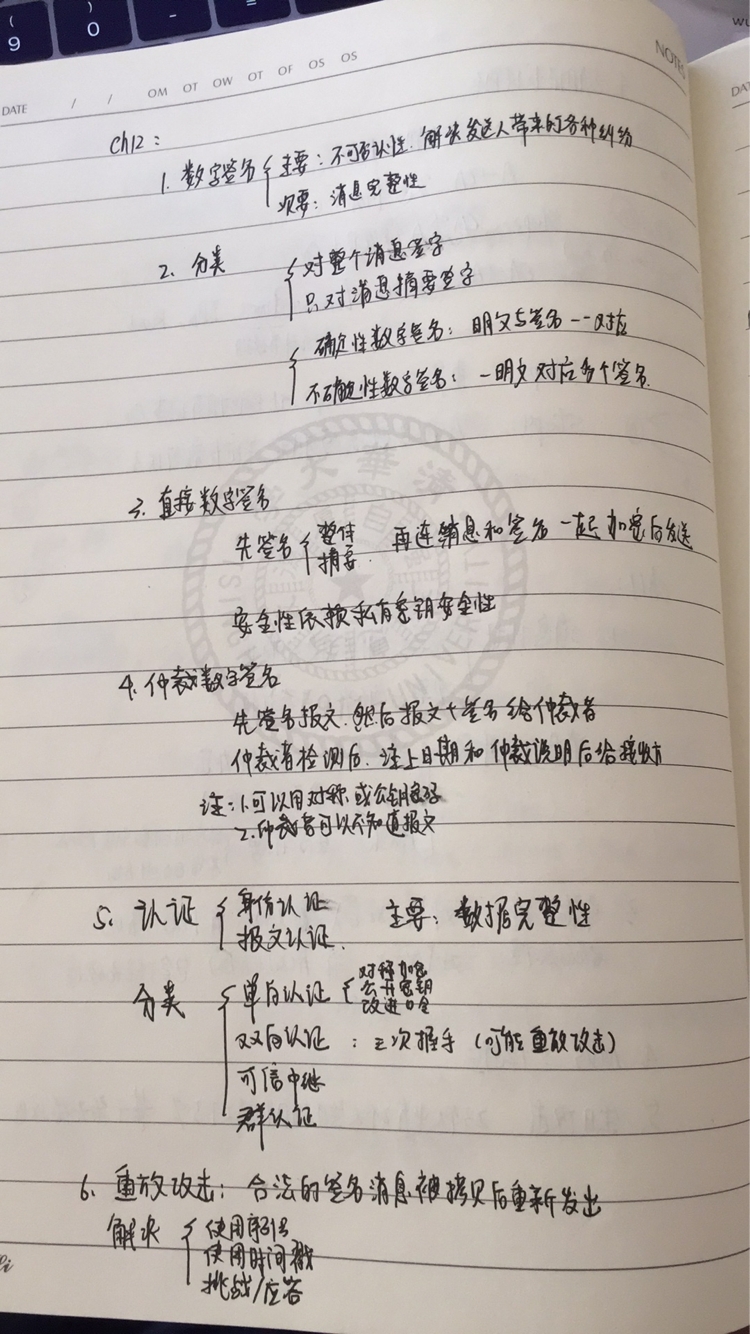 ( 9
) 0
-
=
WU
DATE / / OM OT OW OT OF OS OS
NOTES
DA
Ch12:
1. 数字签名 { 主要: 不可否认性. 解决发送人带来的各种纠纷
次要: 消息完整性
2. 分类 { 对整个消息签字
只对消息摘要签字
{ 确定性数字签名: 明文与签名一一对应
不确定性数字签名: 一明文对应多个签名.
清華大
3. 直接数字签名
先签名 { 整体
摘要. 再连消息和签名一起加密后发送
安全性依赖私有密钥安全性
4. 仲裁数字签名
先签名报文. 然后报文+签名给仲裁者
仲裁者检测后. 注上日期和仲裁说明后给接收方
注: 1.可以用对称或公钥密码
2.仲裁者可以不知道报文
5. 认证 { 身份认证 主要: 数据完整性
报文认证.
分类 { 单向认证 { 对称加密
公开密钥
改进口令
双向认证 : 三次握手 (可能重放攻击)
可信中继
群认证
6. 重放攻击: 合法的签名消息被拷贝后重新发出
解决 { 使用序列号
使用时间戳
挑战/应答